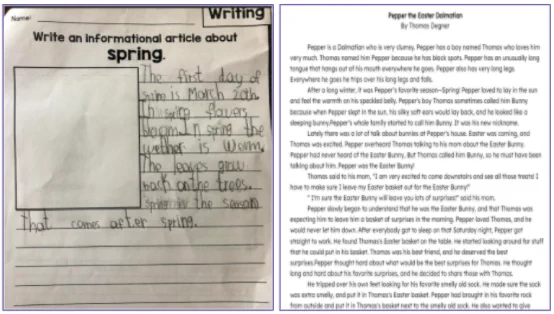 Name:
Writing
Write an informational article about
spring.
The first day of
spring is March 20th.
In spring flavers
bloom. In spring the
wether is Worm.
The leaves grow
back on the trees.
the season
that comes after spring.
Pepper the Easter Dalmatian
By Thomas Degner
Pepper is a Dalmatian who is very clumsy. Pepper has a boy named Thomas who loves him
very much. Thomas named him Pepper because he has black spots. Pepper has an unusually long
tongue that hangs out of his mouth everywhere he goes. Pepper also has very long legs.
Everywhere he goes he trips over his long legs and falls.
After a long winter, it was Pepper's favorite season—Spring! Pepper loved to lay in the sun
and feel the warmth on his speckled belly. Pepper's boy Thomas sometimes called him Bunny
because when Pepper slept in the sun, his silky soft ears would lay back, and he looked like a
sleeping bunny.Pepper's whole family started to call him Bunny. It was his new nickname.
Lately there was a lot of talk about bunnies at Pepper's house. Easter was coming, and
Thomas was excited. Pepper overheard Thomas talking to his mom about the Easter Bunny.
Pepper had never heard of the Easter Bunny. But Thomas called him Bunny, so he must have been
talking about him. Pepper was the Easter Bunny!
Thomas said to his mom, "I am very excited to come downstairs and see all those treats! I
have to make sure I leave my Easter basket out for the Easter Bunny!"
"I'm sure the Easter Bunny will leave you lots of surprises!" said his mom.
Pepper slowly began to understand that he was the Easter Bunny, and that Thomas was
expecting him to leave him a basket of surprises in the morning. Pepper loved Thomas, and he
would never let him down. After everybody got to sleep on that Saturday night, Pepper got
straight to work. He found Thomas's Easter basket on the table. He started looking around for stuff
that he could put in his basket. Thomas was his best friend, and he deserved the best
surprises.Pepper thought hard about what would be the best surprises for Thomas. He thought
long and hard about his favorite surprises, and he decided to share those with Thomas.
He tripped over his own feet looking for his favorite smelly old sock. He made sure the sock
was extra smelly, and put it in Thomas's Easter basket. Pepper had brought in his favorite rock
from outside and put it in Thomas's Easter basket next to the smelly old sock. He also wanted to give